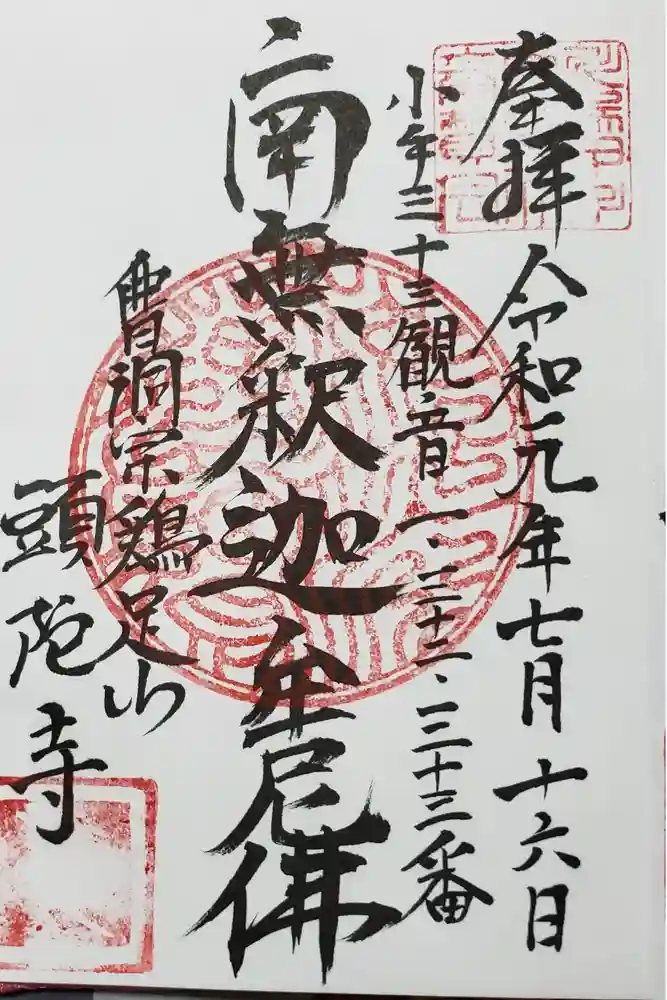 奉拝 令和元年七月十六日
小午三十三観音一、三十二、三十三番
南無釈迦牟尼佛
曹洞宗鶏足山
頭陀寺